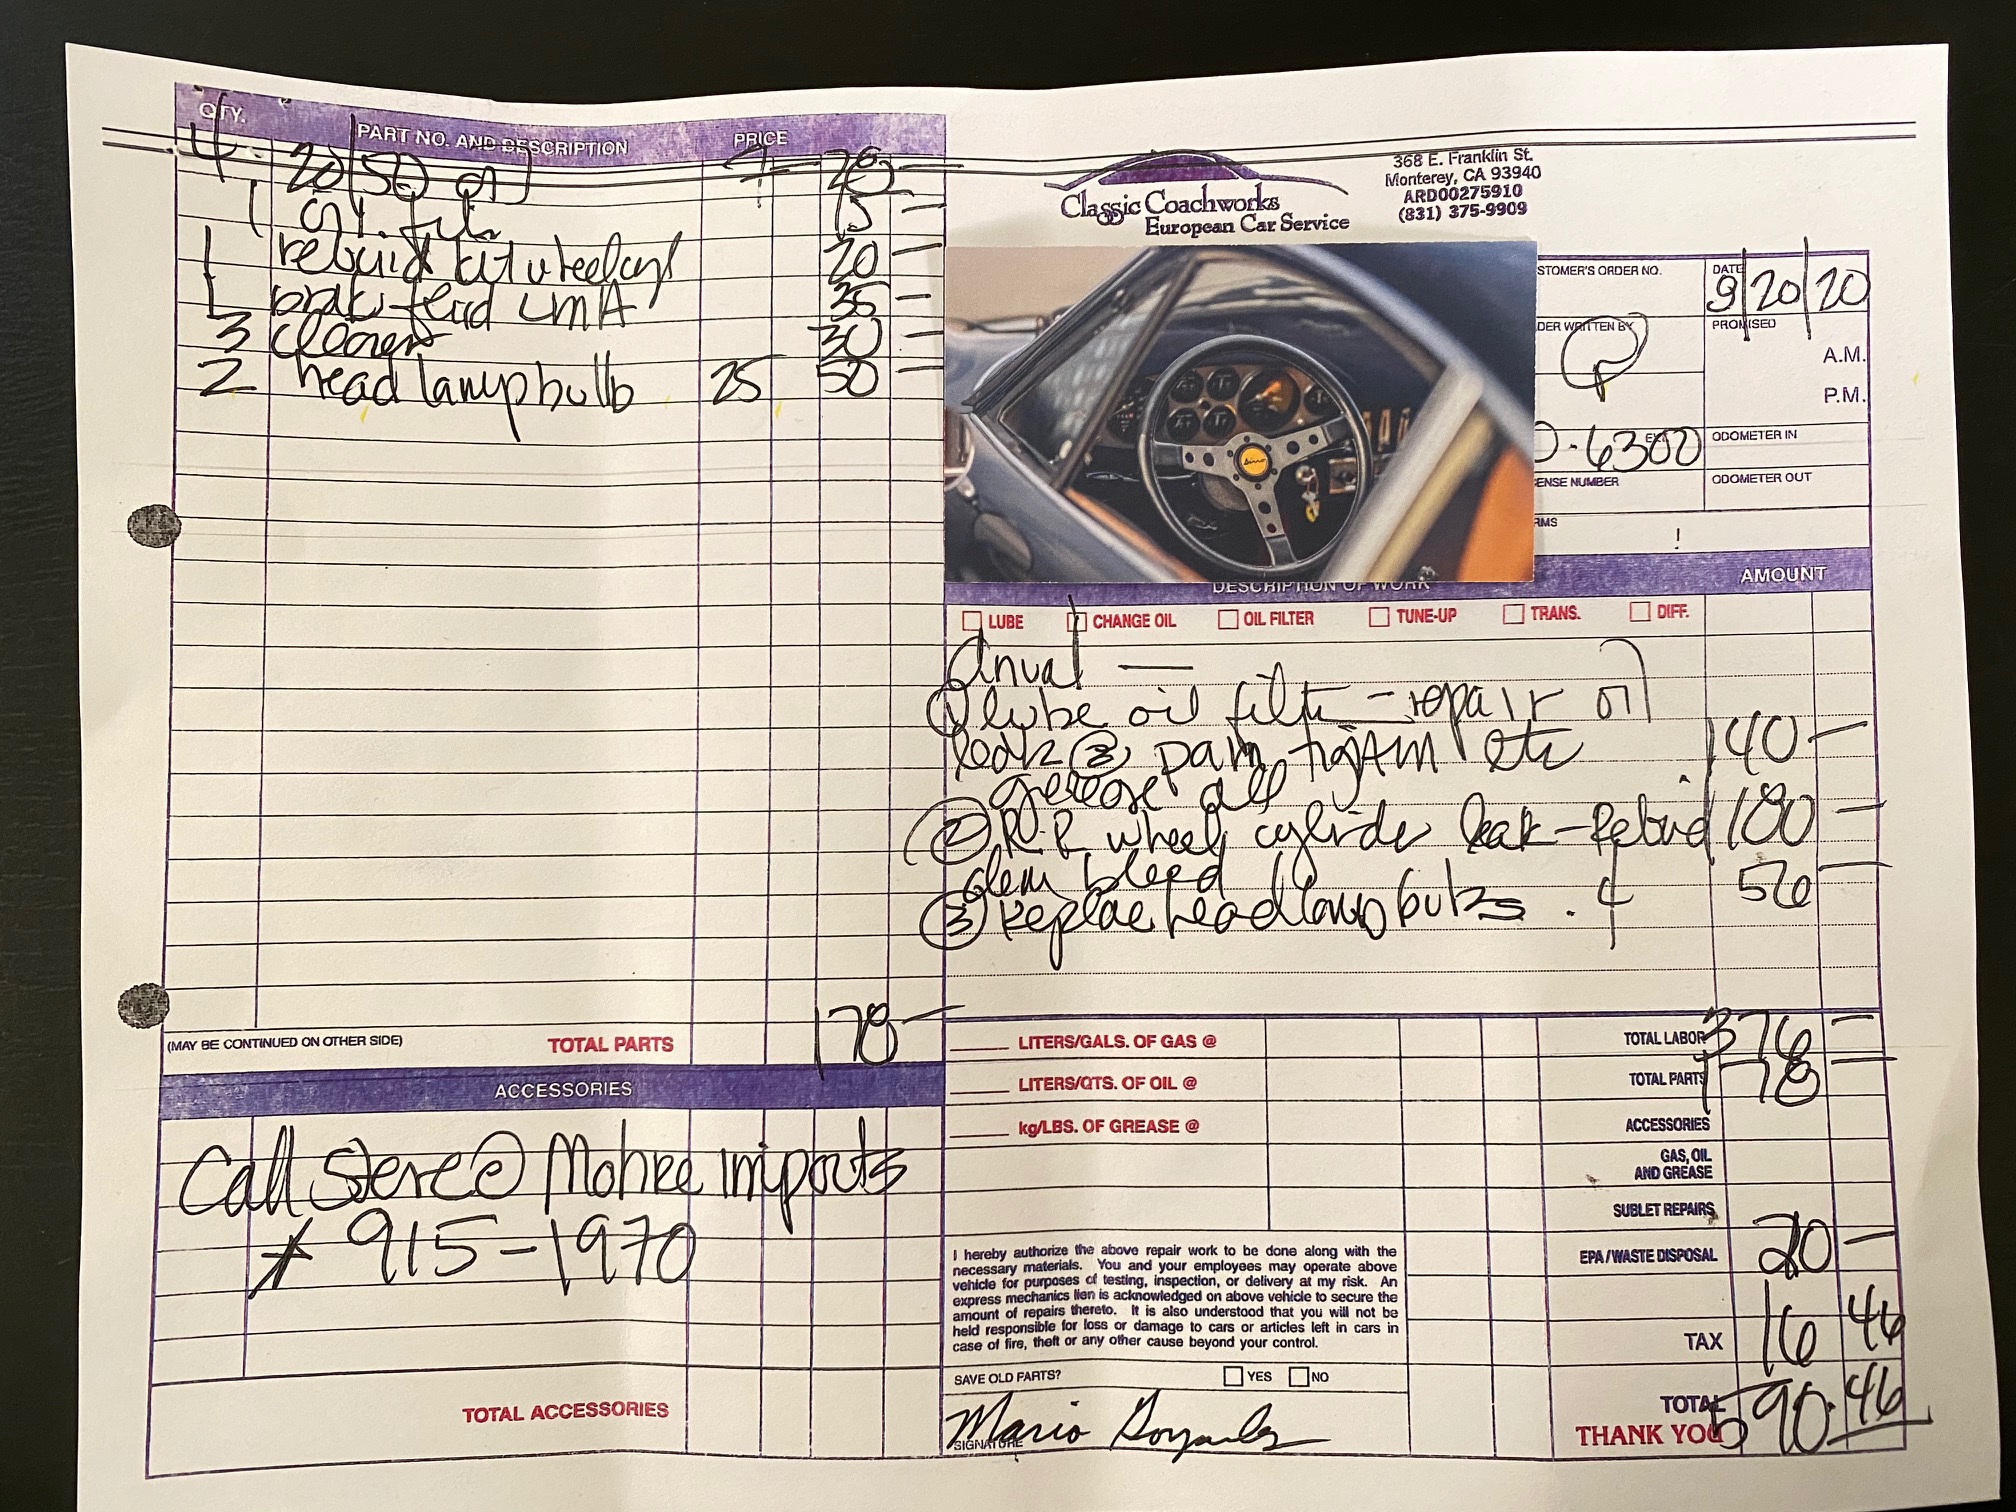 QTY. PART NO. AND DESCRIPTION PRICE
4 20/50 qt 7 — 28 —
1 Oil filt 15 —
1 rebuid kit wheel cyl 20 —
1 brak fluid LMA 35 —
3 cleaner 30 —
2 head lamp bulb 25 50 —
(MAY BE CONTINUED ON OTHER SIDE) TOTAL PARTS 178 —
ACCESSORIES
Call Steve @ Mohre imports
# 915-1970
TOTAL ACCESSORIES
Classic Coachworks
European Car Service
368 E. Franklin St.
Monterey, CA 93940
ARD00275910
(831) 375-9909
STOMER'S ORDER NO. DATE 9/20/20
DER WRITTEN BY PROMISED
A.M.
P.M.
0.6300 EXT. ODOMETER IN
ENSE NUMBER ODOMETER OUT
RMS
Dino
DESCRIPTION OF WORK AMOUNT
LUBE CHANGE OIL OIL FILTER TUNE-UP TRANS. DIFF.
Anual —
① lube oil filt — repair oil
leak @ pan tightn etc 140 —
grease all
② R.R wheel cylider leak - Rebuid 180 —
bleed
③ Replae headlamp bulbs . 4 56 —
LITERS/GALS. OF GAS @ TOTAL LABOR 376 —
LITERS/QTS. OF OIL @ TOTAL PARTS 178 —
kg/LBS. OF GREASE @ ACCESSORIES
GAS, OIL
AND GREASE
SUBLET REPAIRS
EPA/WASTE DISPOSAL 20 —
TAX 16 46
TOTAL 590.46
THANK YOU
I hereby authorize the above repair work to be done along with the
necessary materials. You and your employees may operate above
vehicle for purposes of testing, inspection, or delivery at my risk. An
express mechanics lien is acknowledged on above vehicle to secure the
amount of repairs thereto. It is also understood that you will not be
held responsible for loss or damage to cars or articles left in cars in
case of fire, theft or any other cause beyond your control.
SAVE OLD PARTS? YES NO
Mario Gonzalez
SIGNATURE